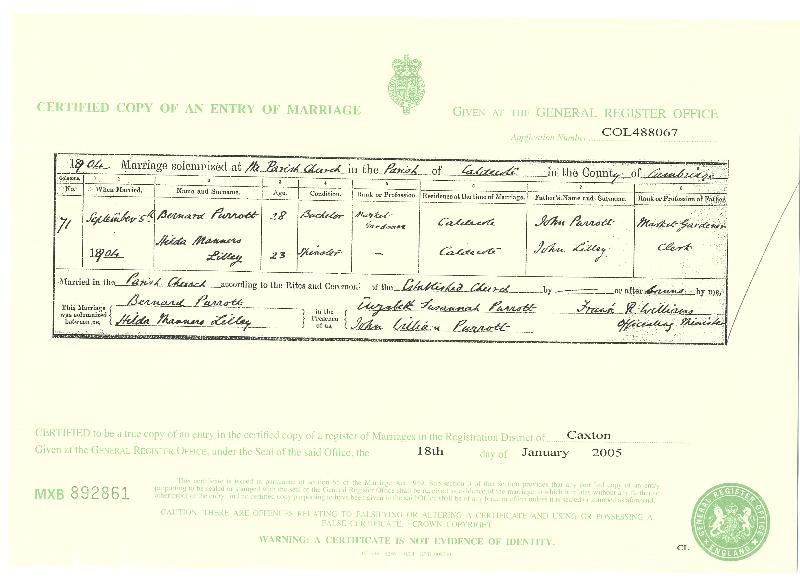 CERTIFIED COPY OF AN ENTRY OF MARRIAGE
GIVEN AT THE GENERAL REGISTER OFFICE
Application Number COL488067
1904. Marriage solemnized at The Parish Church in the Parish of Caldecote in the County of Cambridge
Columns 1 2 3 4 5 6 7 8
No. When Married. Name and Surname. Age. Condition. Rank or Profession. Residence at the time of Marriage. Father's Name and Surname. Rank or Profession of Father
71 September 5th Bernard Purrott 28 Bachelor Market Gardener Caldecote John Purrott Market Gardener
1904 Hilda Manners Lilley 23 Spinster — Caldecote John Lilley Clerk
Married in the Parish Church according to the Rites and Ceremonies of the Established Church by or after Banns by me,
This Marriage was solemnized between us, Bernard Purrott Hilda Manners Lilley in the Presence of us, Elizabeth Susannah Purrott John William Purrott Frank R. Williams Officiating Minister
CERTIFIED to be a true copy of an entry in the certified copy of a register of Marriages in the Registration District of Caxton
Given at the GENERAL REGISTER OFFICE, under the Seal of the said Office, the 18th day of January 2005
MXB 892861
This certificate is issued in pursuance of section 65 of the Marriage Act 1949. Sub-section 3 of that section provides that any certified copy of an entry
purporting to be sealed or stamped with the seal of the General Register Office shall be received as evidence of the marriage to which it relates without any further or
other proof of the entry, and no certified copy purporting to have been given in the said Office shall be of any force or effect unless it is sealed or stamped as aforesaid.
CAUTION: THERE ARE OFFENCES RELATING TO FALSIFYING OR ALTERING A CERTIFICATE AND USING OR POSSESSING A
FALSE CERTIFICATE. ©CROWN COPYRIGHT
WARNING: A CERTIFICATE IS NOT EVIDENCE OF IDENTITY.
CL
GENERAL REGISTER OFFICE
ENGLAND